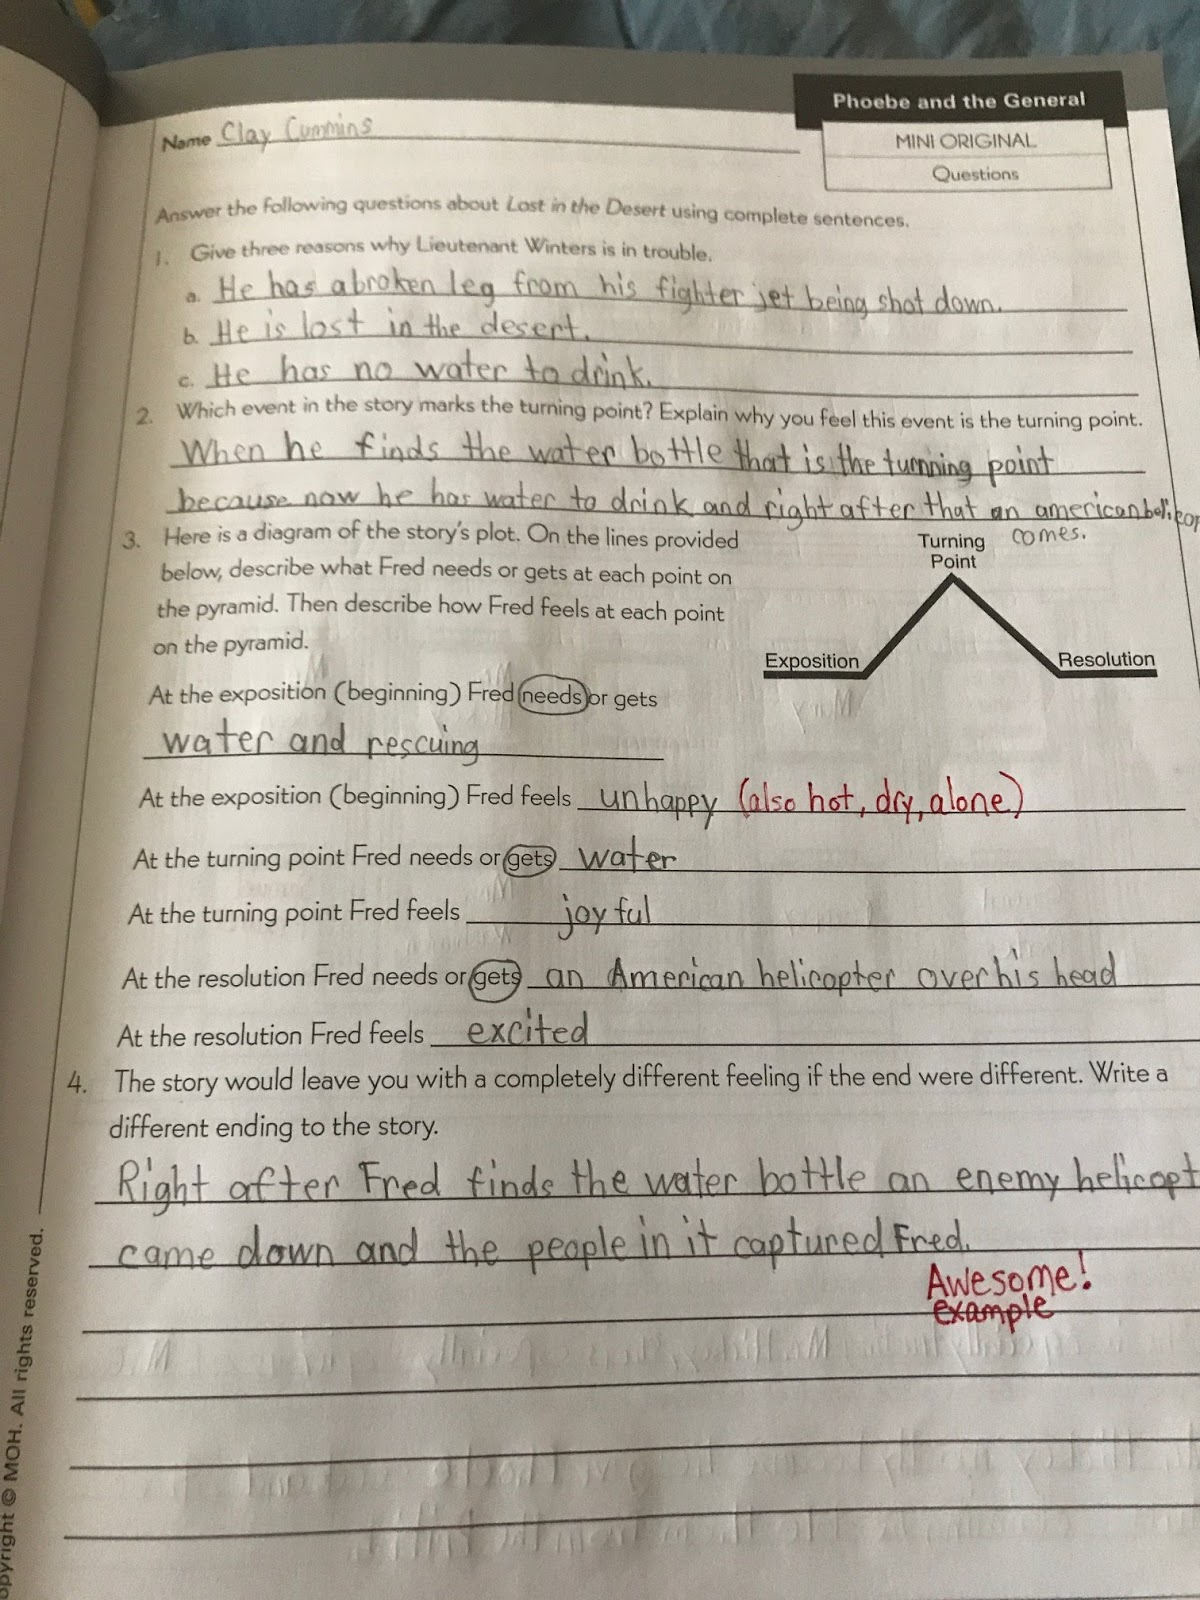 Phoebe and the General
MINI ORIGINAL
Questions
Name Clay Cummins
Answer the following questions about Lost in the Desert using complete sentences.
1. Give three reasons why Lieutenant Winters is in trouble.
a. He has a broken leg from his fighter jet being shot down.
b. He is lost in the desert.
c. He has no water to drink.
2. Which event in the story marks the turning point? Explain why you feel this event is the turning point.
When he finds the water bottle that is the turnning point
because now he has water to drink and right after that an american helikop
comes.
3. Here is a diagram of the story's plot. On the lines provided
below, describe what Fred needs or gets at each point on
the pyramid. Then describe how Fred feels at each point
on the pyramid.
Turning
Point
Exposition
Resolution
At the exposition (beginning) Fred needs or gets
water and rescuing
At the exposition (beginning) Fred feels unhappy (also hot, dry, alone)
At the turning point Fred needs or gets water
At the turning point Fred feels joyful
At the resolution Fred needs or gets an American helicopter over his head
At the resolution Fred feels excited
4. The story would leave you with a completely different feeling if the end were different. Write a
different ending to the story.
Right after Fred finds the water bottle an enemy helicopt
came down and the people in it captured Fred.
Awesome!
example
opyright © MOH. All rights reserved.